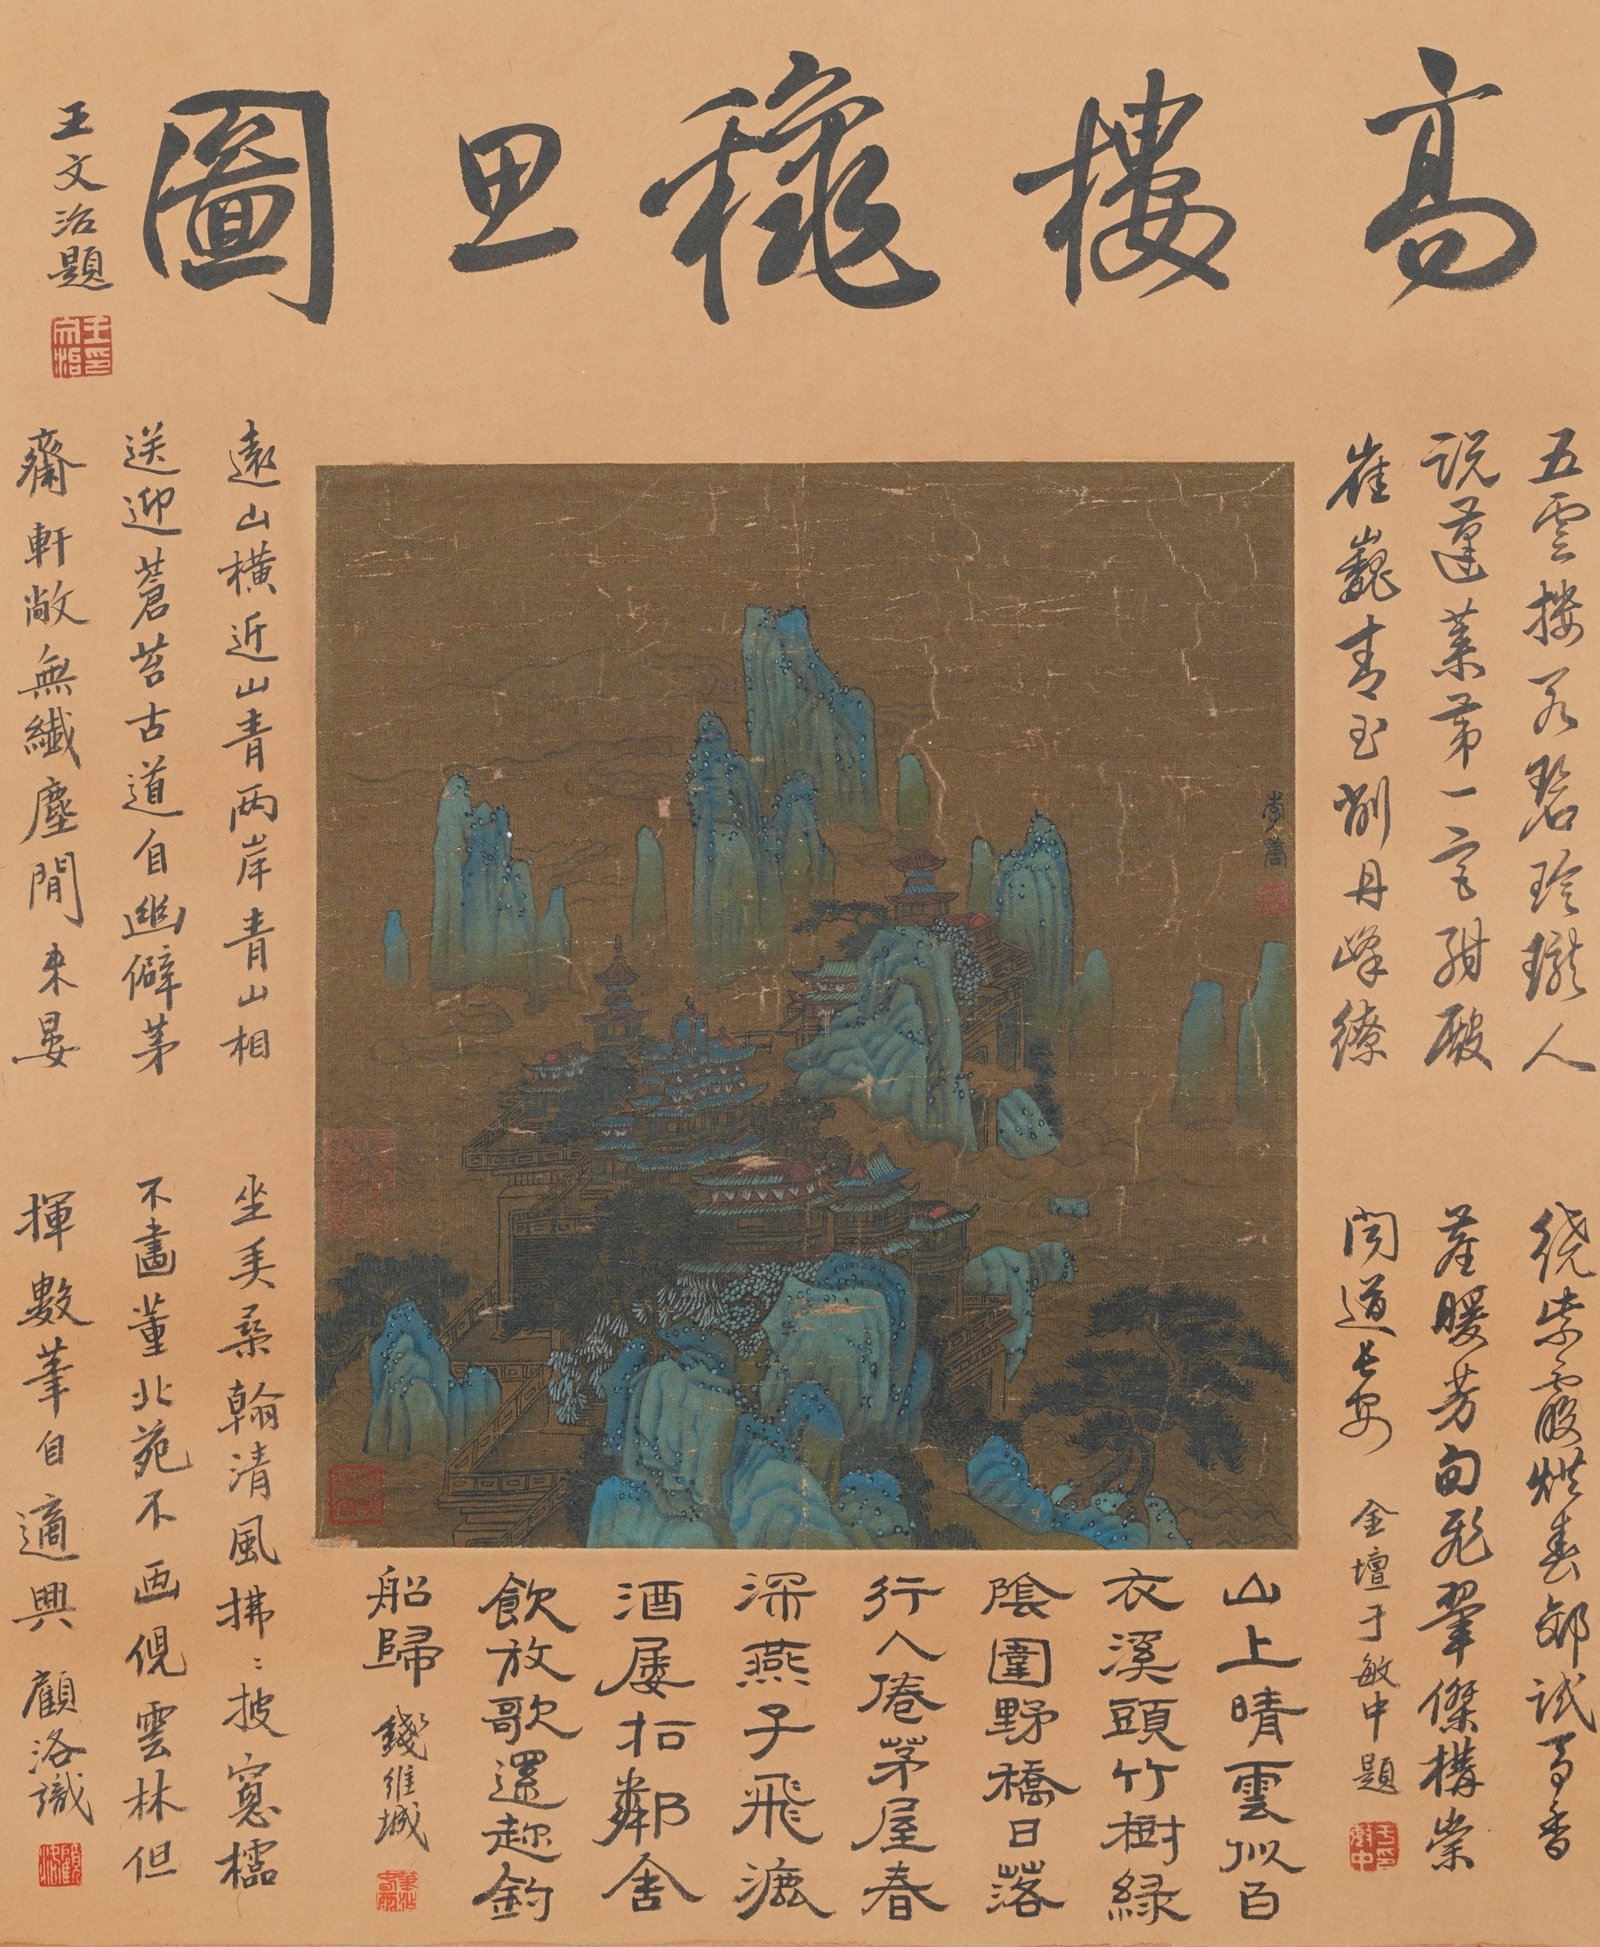 高樓穐思圖
王文治題
五雲樓閣碧玲瓏人
説蓬萊第一宮紺殿
崔巍青玉削丹峰繚
繞紫霞烘春郊試馬香
塵暖芳甸飛翬傑構崇
聞道長安 金壇于敏中題
山上晴雲似白
衣溪頭竹樹綠
陰圍野橋日落
行人倦茅屋春
深燕子飛漉
酒屢招鄰舍
飲放歌還趁釣
船歸 錢維城
遠山橫近山青兩岸青山相
送迎蒼苔古道自幽僻茅
齋軒敞無纖塵閒來晏
坐弄柔翰清風拂〻披窓櫺
不畫董北苑不画倪雲林但
揮數筆自適興 顧洛識